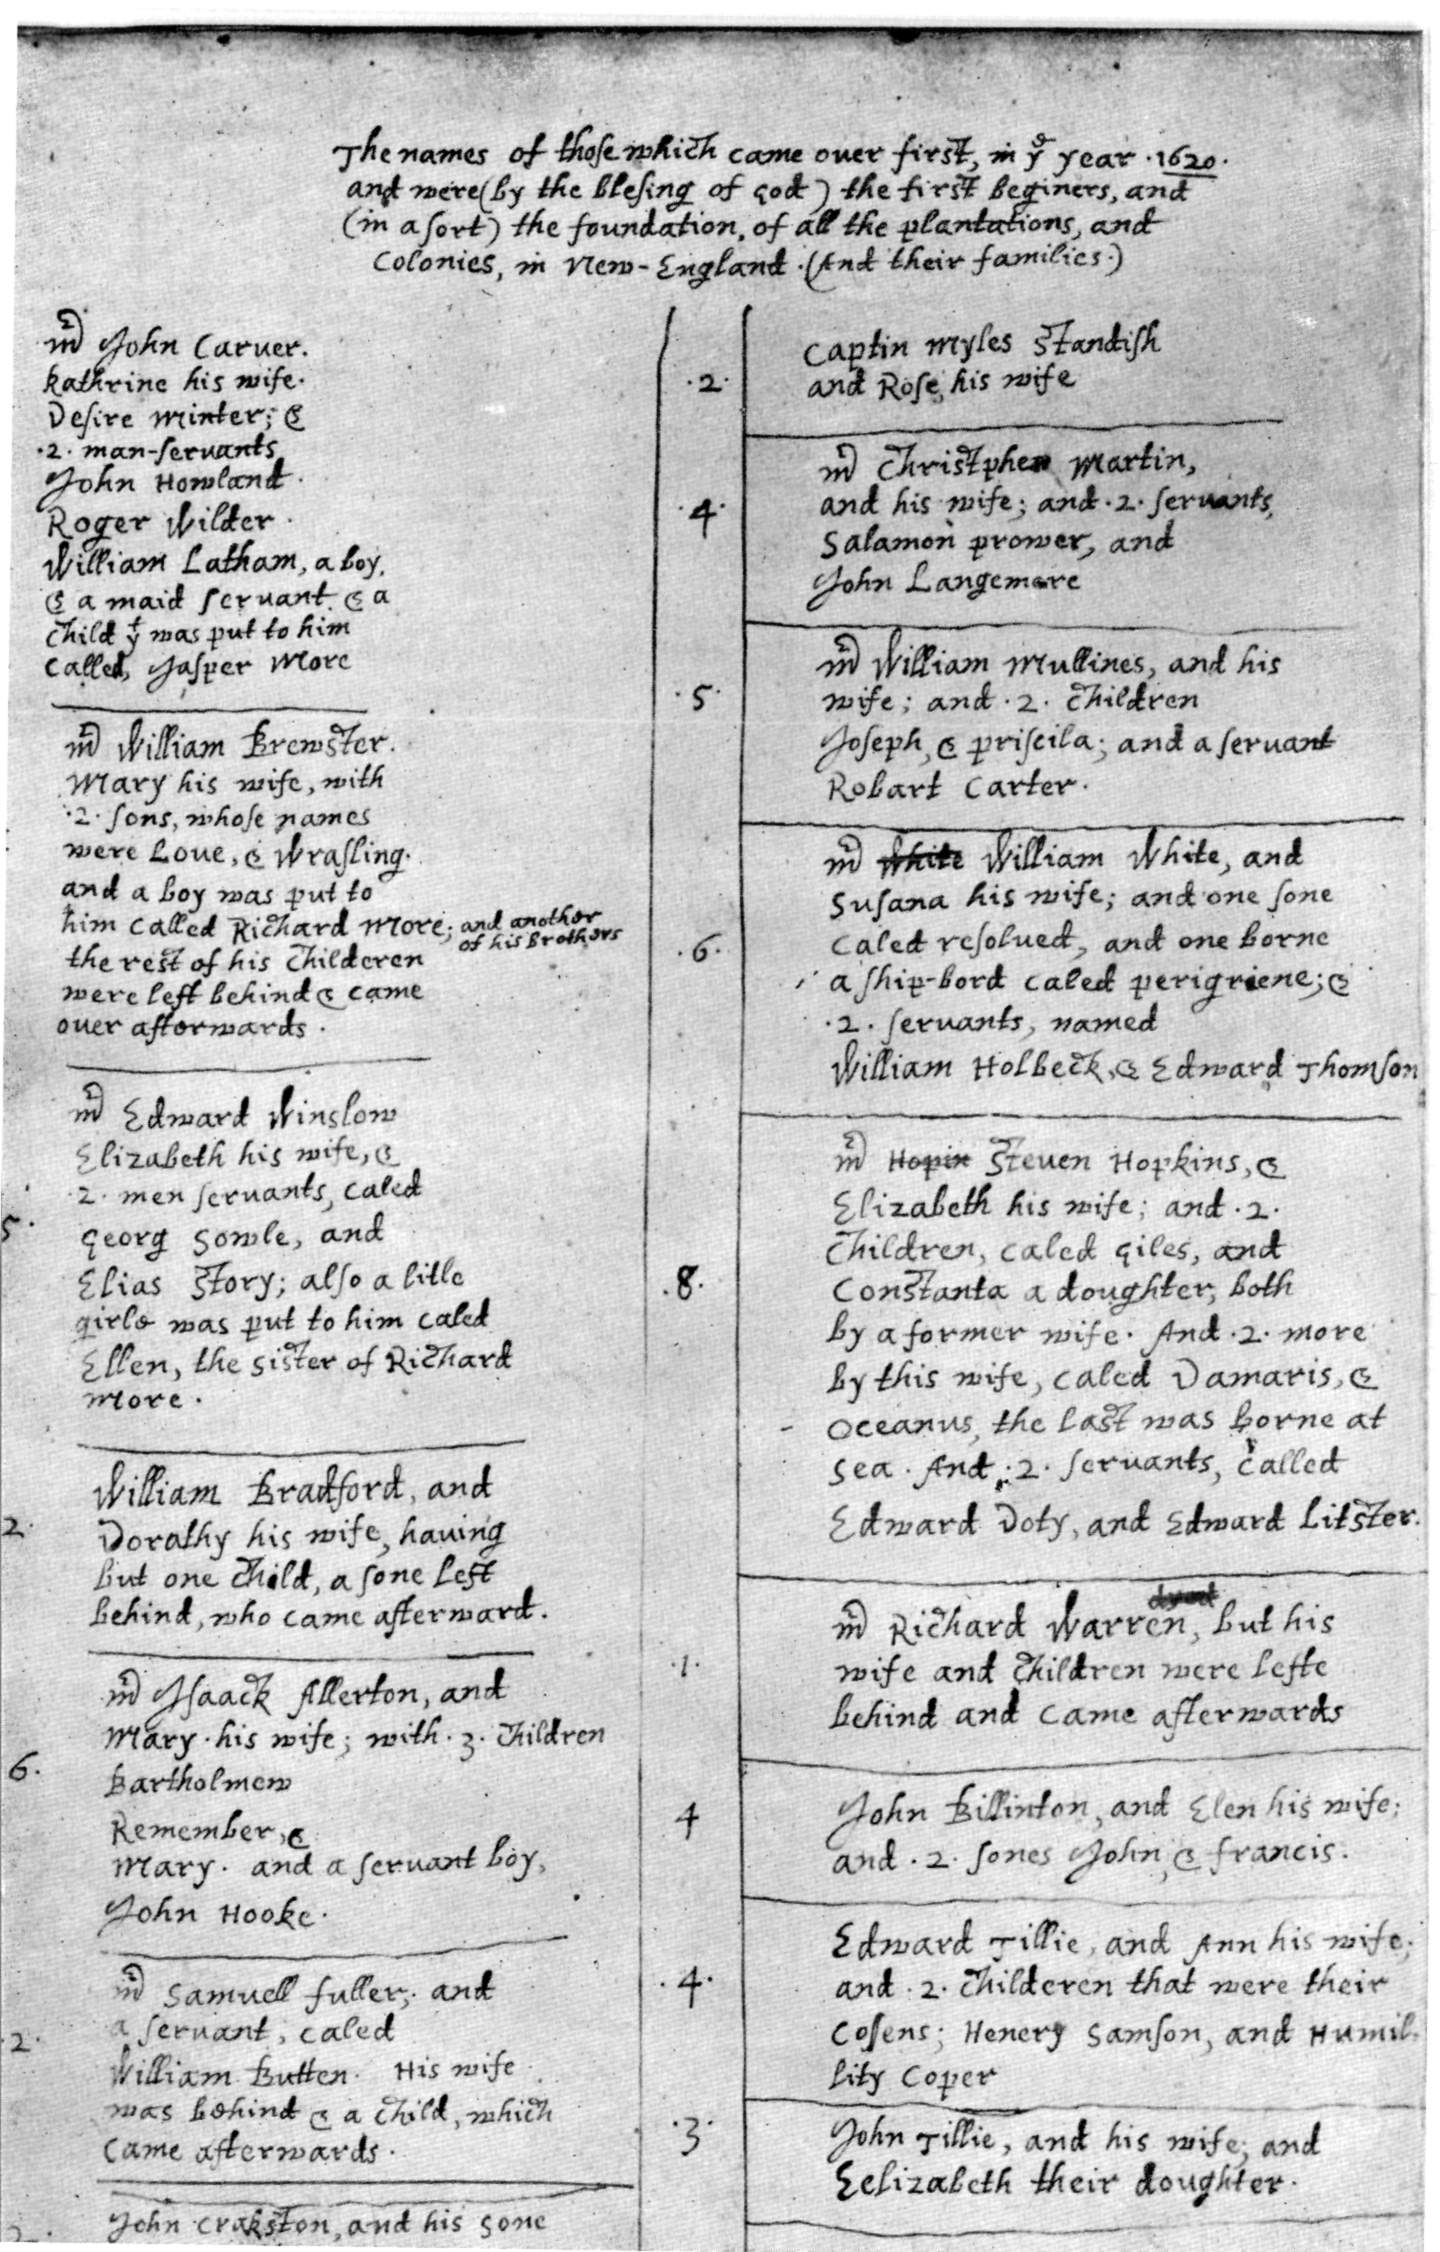 The names of those which came over first, in yͤ year ·1620·
and were (by the blesing of god) the first beginers, and
(in a sort) the foundation, of all the plantations, and
Colonies, in New-England· (And their families·)
mʳ John Carver.
Kathrine his wife·
Desire Minter; &
·2· man-servants
John Howland·
Roger Wilder·
William Latham, a boy,
& a maid servant. & a
child yᵗ was put to him
called, Jasper More
mʳ William Brewster.
Mary his wife, with
·2· sons, whose names
were Love, & Wrasling·
and a boy was put to
him called Richard More; and another
of his Brothers
the rest of his Childeren
were left behind & came
over afterwards·
5·
mʳ Edward Winslow
Elizabeth his wife, &
·2· men servants, caled
Georg Sowle, and
Elias Story; also a litle
girle was put to him caled
Ellen, the sister of Richard
More·
2·
William Bradford, and
Dorathy his wife, having
but one child, a sone left
behind, who came afterward.
6·
mʳ Isaack Allerton, and
Mary·his wife; with·3·children
Bartholmew
Remember, &
Mary· and a servant boy,
John Hooke·
·2·
mʳ Samuell fuller; and
a servant, caled
William Butten· His wife
was behind & a child, which
came afterwards·
2·
John Crakston, and his sone
·2·
Captin Myles Standish
and Rose, his wife
·4·
mʳ Christpher Martin,
and his wife; and·2·servants,
Salamon prower, and
John Langemore
·5·
mʳ William Mullines, and his
wife; and·2·children
Joseph, & priscila; and a servant
Robart Carter·
·6·
mʳ White William White, and
Susana his wife; and one sone
caled resolved, and one borne
a ship-bord caled perigriene; &
·2· servants, named
William Holbeck, & Edward Thomson
·8·
mʳ Hopin Steven Hopkins, &
Elizabeth his wife; and·2·
children, caled Giles, and
Constanta a doughter, both
by a former wife· And·2·more
by this wife, caled Damaris, &
Oceanus, the last was borne at
sea· And·2·servants, called
Edward Doty, and Edward Litster.
·1·
dyed
mʳ Richard Warren, but his
wife and children were lefte
behind and came afterwards
4
John Billinton, and Elen his wife;
and·2·sones John, & francis·
·4·
Edward Tillie, and Ann his wife;
and·2·childeren that were their
Cosens; Henery Samson, and Humil-
lity Coper
·3·
John Tillie, and his wife; and
Eelizabeth their doughter·